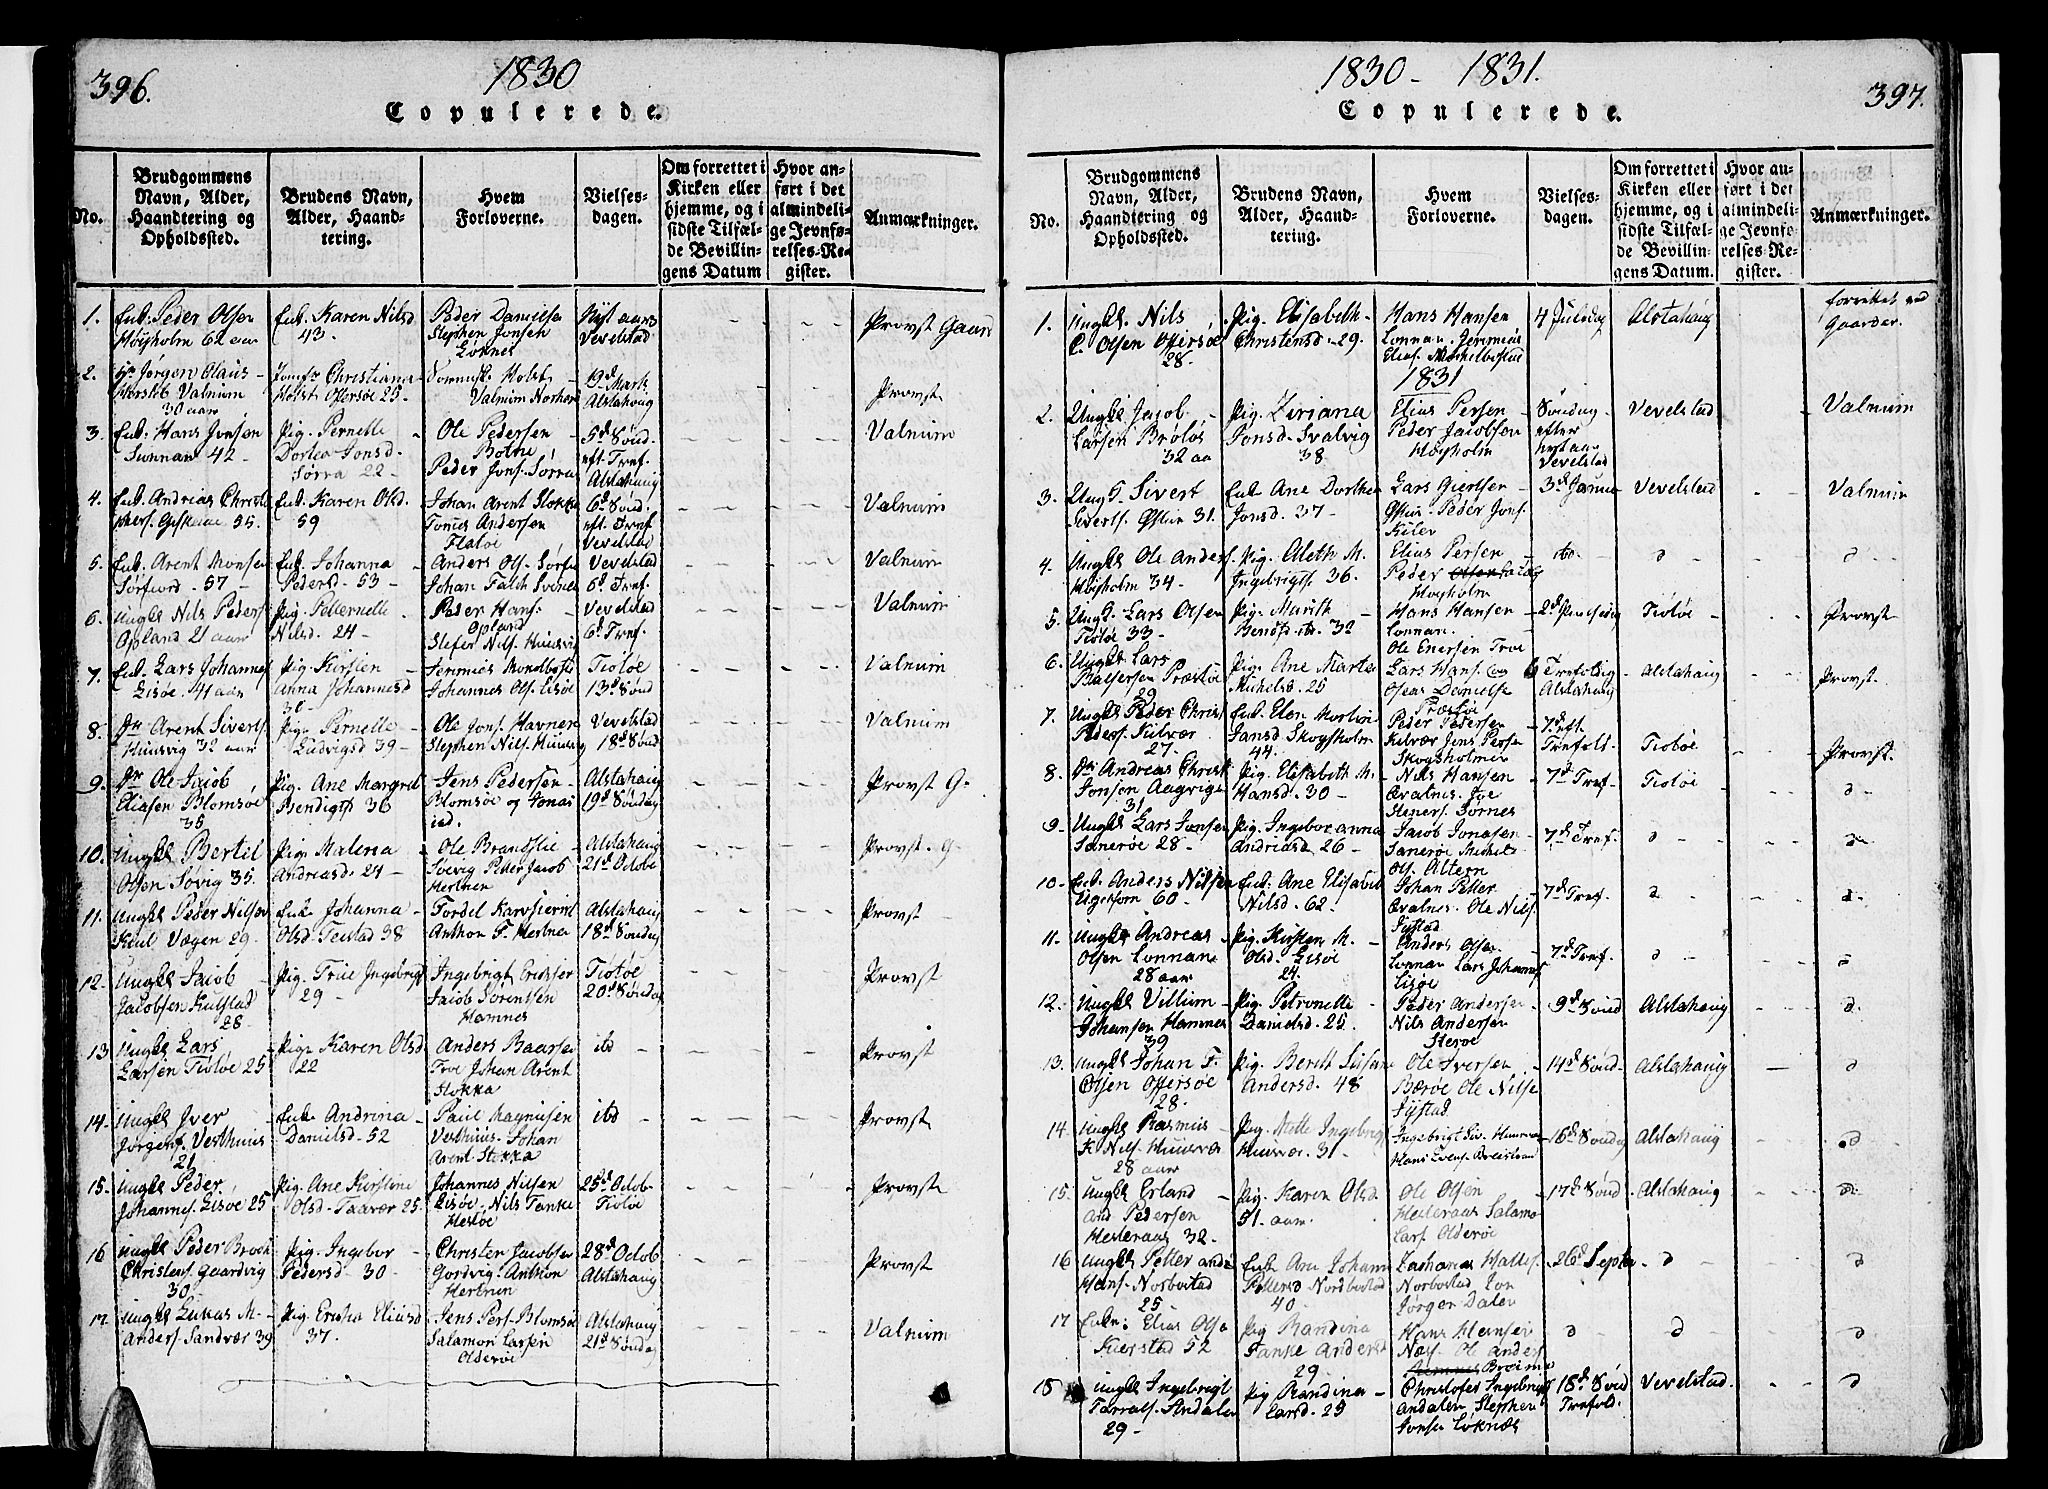 396.
1830
Copulerede.
No.
Brudgommens
Navn, Alder,
Haandtering og
Opholdssted.
Brudens Navn,
Alder, Haand-
tering.
Hvem
Forloverne.
Vielses-
dagen.
Om forrettet i
Kirken eller
hjemme, og i
sidste Tilfæl-
de Bevillin-
gens Datum
Hvor an-
ført i det
almindeli-
ge Jevnfø-
relses-Re-
gister.
Anmærkninger.
1.
Enk. Peder Olsen
Høysholm 62 aar
Enk. Karen Nilsd
43
Peder Danielsen
Stephen Jonsen
Loknes
Nyt aars
Vevelstad
Provst Gaard
2.
Hr Jørgen Olaus
Valnum
30 aar
Jomfr Christiana
Holst Offersøe 25
Holst
Valnum
19d Mark
Alstahaug
Provst
3.
Enk. Hans Jonsen
Sunnan 42
Pig. Pernelle
Dortea Jonsd.
Sørra 22
Ole Pedersen
Bolne
Peder Jons. Sørra
5d Sønd.
eft. Tref.
Alstahaug
Valnum
4.
Enk. Andrias Christ
55.
Enk. Karen Olsd.
59
Johan Arent Stokka
Tonnes Andersen
Flatøe
6d Sønd.
eft. Tref
Vevelstad
Valnum
5.
Enk. Arent Monsen
Sørfiord 57
Enk. Johanna
Pedersd 53
Anders Ols. Sørfi
Johan Falch
Vevelstad
6d Tref.
Valnum
6.
Ungkl Nils Peders
Opland 21 aar
Pig. Petternelle
Nilsd. 24
Peder Hans.
Opland
Stefer Nils. Huusvi
Vevelstad
6d Tref.
Valnum
7.
Enk. Lars Johannes
Lisøe 41 aar
Pig. Kirsten
Anna Johannesd
30
Jeremies
Johannes Ols. Lisøe
Tiøtøe
13d Sønd
Valnum
8.
Arent Siverts
Huusvig 32 aar
Pig. Pernelle
Ludvigsd 39
Ole Jons. Havnen
Stephen Nils. Huusvig
Vevelstad
18d Sønd
Valnum
9.
Ole Jacob
Eliasen Blomsøe
35
Pig. Ane Margret
Bendigts 36
Jens Pedersen
Blomsøe og Jonas
ibd.
Alstahaug
19d Søndag
Provst G
10.
Ungkl Bertil
Olsen Søvig 35.
Pig. Malena
Andreasd. 24
Ole Brandslie
Søevig Peter Jacob
Hertnen
Alstahaug
21d Octobe
Provst. G
11.
Ungkl Peder Nilsen
Vægen 29
Enk Johanna
Olsd. Teistad 38
Tordel
Anthon F. Hertnen
Alstahaug
18d Søndag
Provst
12.
Ungkl Jacob
Jacobsen Kulstad
28
Pig. True Ingebrigt
29
Ingebrigt Ericksen
Jacob Sørentsen
Hamnes
Tiøtøe
20d Søndag
Provst
13
Ungkl Lars
Larsen Tiøtøe 25
Pige Karen Olsd
22
Anders Baarsen
Troe Johan Arent
Stokka
ibd
Provst
14.
Ungkl Iver
Jørgens. Vesthuus
21
Enk. Andrina
Danielsd. 52
Paul Magnusen
Vesthuus. Johan
Arent Stokka
ibd
Provst
15.
Ungkl Peder
Johannes. Lisøe 25
Pig. Ane Kirstine
Olsd. 25
Johannes Nilsen
Lisøe. Nils Fanke
Hestøe
25d Octob
Tiøtøe
Provst
16
Ungkl Peder Broch
Christens. Gaardvig
30
Pig. Ingebor
Pedersd. 30
Christen Jacobsen
Gordvig. Anthon
Hertnen
28d Octob
Alstahaug
Provst
17.
Ungkl Lukas M.
Anders. Sandvær 39
Pig. Ericka Eliasd
37.
Jens Pers. Blomsøe
Salamon Larsen
Olderøe
Alstahaug
21d Søndag
Valnum
1830 - 1831.
397.
Copulerede.
No.
Brudgommens
Navn, Alder,
Haandtering og
Opholdssted.
Brudens Navn,
Alder, Haand-
tering.
Hvem
Forloverne.
Vielses-
dagen.
Om forrettet i
Kirken eller
hjemme, og i
sidste Tilfæl-
de Bevillin-
gens Datum.
Hvor an-
ført i det
almindeli-
ge Jevnfø-
relses-Re-
gister.
Anmærkninger.
1.
Ungkl. Nils
C. Olsen Offersøe
28.
Pig. Elisabeth
Christensd. 29.
Hans Hansen
Lonnan. Jeremies
Elias.
4 Juledag
Alstahaug
forrettet ved
Gaarder.
1831
2.
Ungkl Jacob
Larsen Brøløs
32 aa
Pig. Ziriana
Jonsd. Svalvig
38
Elias Persen
Peder Jacobsen
Høysholm
Søndag
efter
nyt aar
Vevelstad
Vevelstad
Valnum
3.
Ung. Sivert
Siverts. 31.
Enk Ane Dorthea
Jonsd. 37
Lars Giertsen
Peder Jons.
3d Janua
Vevelstad
Valnum
4.
Ungkl Ole Anders
Høysholm 34
Pig. Aleth M.
Ingebrigts. 36.
Elias Persen
Peder
Høysholm
ibd
d
d
5.
Ung. Lars Olsen
Tiøtøe 33
Pig. Marith
Bendsd ibd. 32
Hans Hansen
Lonnan.
Ole Enersen Troe
2d
Tiøtøe
Provst
6.
Ungkl Lars
Baltsersen Præstøe
29
Pig. Ane Marta
Michelsd. 25
Lars Hans. og
Oseas Danielse
Præstøe
Trefoldig
Alstahaug
Alstahaug
Provst.
7.
Ungkl Peder Christ
Peders. Kulvær
27
Enk. Elen Martine
Jansd Skogsholm
44
Peder Pedersen
Kulvær Jens Persen
Skogsholmen
7d eft
Trefold.
Tiøtøe
Provst.
8.
Andreas Christ
Jonsen Aagvigen
31
Pig. Elisabeth M.
Hansd. 30
Nils Hansen
Qvalnes. Joe
Steners. Sørnes
7d Tref
Tiøtøe
d
9.
Ungkl Lars Jonsen
Sanerøe 28
Pig. Ingebor anna
Andriasd 26
Jacob Jonasen
Sanerøe Michel
Ols. Altern
7d Tref.
d
d
10.
Enk. Anders Nilsen
60
Enk. Ane Elisabet
Nilsd. 62
Johan Petter
Qvalnes. Ole Nils.
Systad
7d Tref.
d
d
11.
Ungkl Andreas
Olsen Lonnan
28 aar
Pig. Kirsten M.
Olsd. Lisøe
24
Anders Olsen
Lonnan Lars Johannes
Lisøe
7d Tref.
d
d
12.
Ungkl Villum
Johansen Hamnes
39
Pig. Petronelle
Danielsd. 25.
Peder Andersen
Nils Andersen
Sterøe
9d Sønd
Alstahaug
d
13.
Ungkl Johan F.
Olsen Offersøe
28.
Pig. Berith Susane
Andersd. 48
Ole Iversen
Bærøe Ole Nilse
Systad
14d Sønd
Alstahaug
d
14
Ungkl Rasmus
K Nils. Huusvæ
28 aar
Pig. Mette Ingebrigt
Huusvæ. 31
Ingebrigt Siv. Huusvæ
Hans
16d Søndag
Alstahaug
d
15.
Ungkl Erland
And Pedersen
Hesteraas 32.
Pig. Karen Olsd
51. aar.
Ole Olsen
Hesteraas Salamo
Lars Olderøe
17d Sønd
Alstahaug
d
16
Ungkl Petter Andr
Hans. Norbostad
25
Enk Ane Johann
Pettersd Nordbostad
40
Zacharias
Norbostad Jon
Jørgen Dalen
26d Septe
d
d
17
Enkm: Elias Olse
52
Pig Randina
Fanke Andersd
29
Hans Hansen
Næs. Ole Anders
d
d
d
18
Ungkl Ingebrigt
Torrals. Andalen
29
Pig Randina
Larsd. 25
Christofer Ingebrigt
Andalen Stephen
Jonsen Loknæs
18d Sønd
Trefold.
Vevelstad.
d